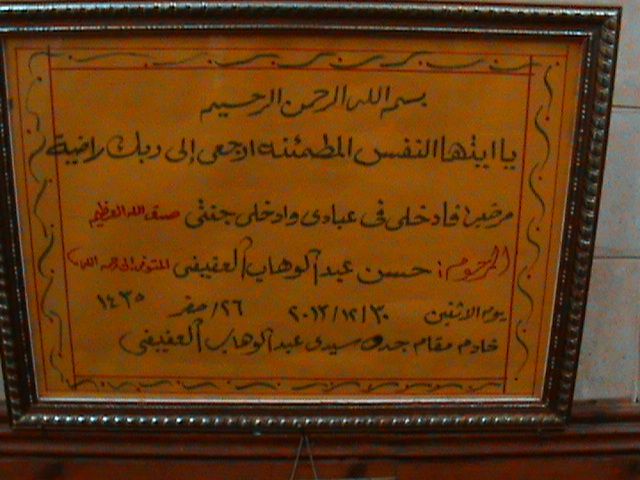 بسم الله الرحمن الرحيم
يا ايتها النفس المطمئنه ارجعى إلى ربك راضية
مرضيه فادخلى فى عبادى وادخلى جنتى صدق الله العظيم
المرحوم : حسن عبد الوهاب العفيفى المتوفى إلى رحمة الله
يوم الاثنين ٢٠١٣/١٢/٣٠ ٢٦/ صفر ١٤٣٥
خادم مقام جده سيدى عبد الوهاب العفيفى